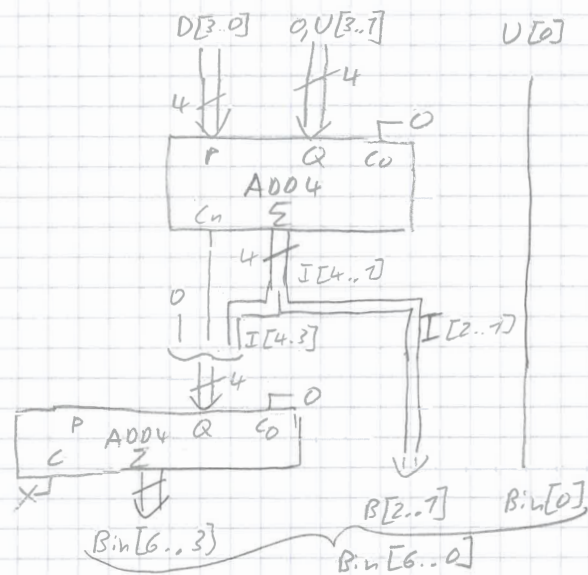 D[3..0] 0,U[3..1] U[0]
4 4
0
P Q C0
ADD4
Cn Σ
4 I[4..1]
0
I[4.3] I[2..1]
4
0
P Q C0
ADD4
C Σ
X
Bin[6..3) B[2..1] Bin[0]
Bin[6..0]